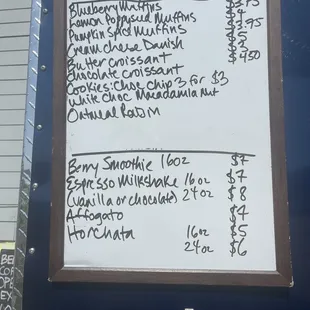 Blueberry Muffins
Lemon Poppyseed Muffins $4
Pumpkin Spice Muffins
Cream cheese Danish $5
Butter croissant $3
Chocolate croissant $4.50
Cookies: Choc Chip 3 for $3
White Choc Macadamia Nut
Oatmeal Raisin
Berry Smoothie 16oz $7
Espresso Milkshake 16oz $7
(vanilla or chocolate) 24oz $8
Affogato $4
Horchata 16oz $5
24oz $6